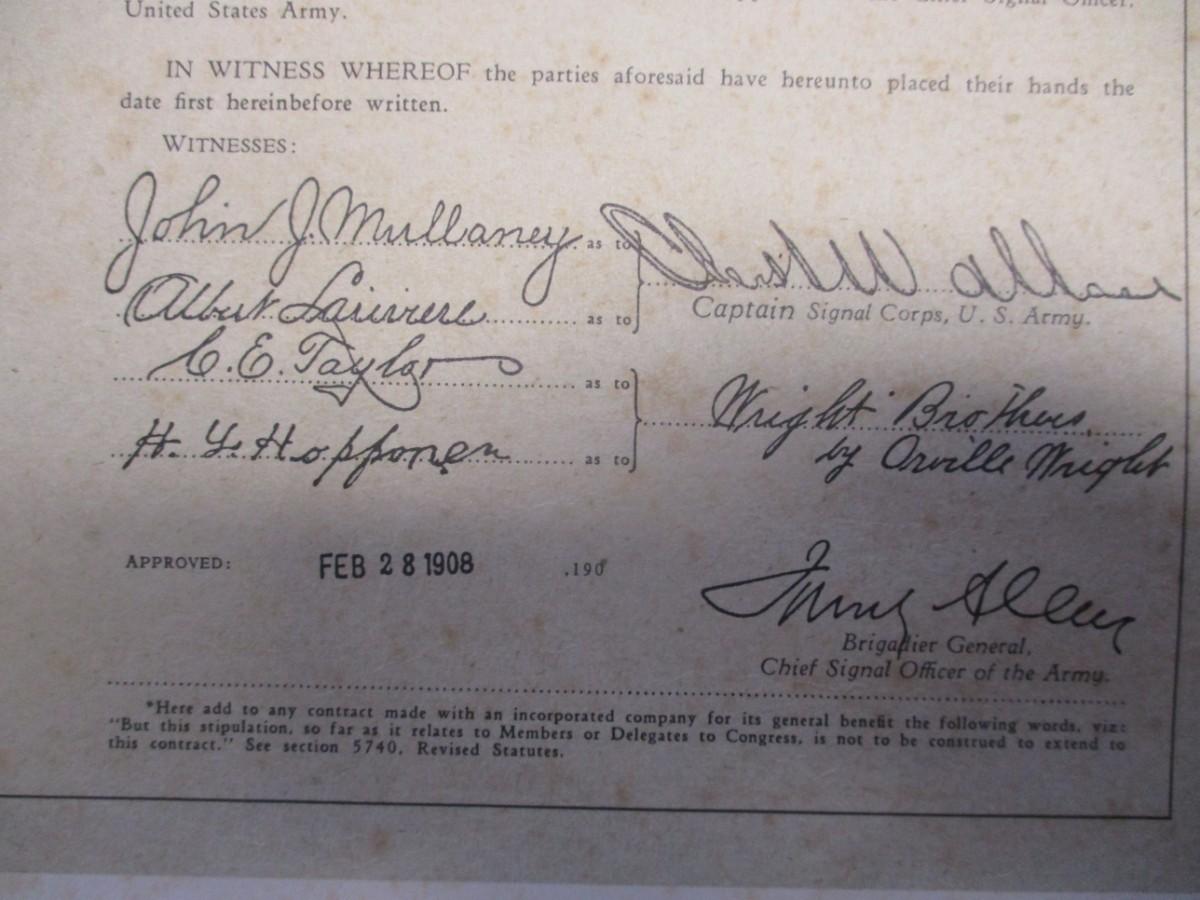 Chief Signal Officer,
United States Army.
IN WITNESS WHEREOF the parties aforesaid have hereunto placed their hands the
date first hereinbefore written.
WITNESSES:
John J. Mullaney as to
Chas W Wallace
Captain Signal Corps, U. S. Army.
Albert Lariviere as to
C. E. Taylor as to
Wright Brothers,
by Orville Wright
H. as to
APPROVED: FEB 28 1908 ,190
Allen
Brigadier General,
Chief Signal Officer of the Army.
*Here add to any contract made with an incorporated company for its general benefit the following words, viz:
"But this stipulation, so far as it relates to Members or Delegates to Congress, is not to be construed to extend to
this contract." See section 5740, Revised Statutes.